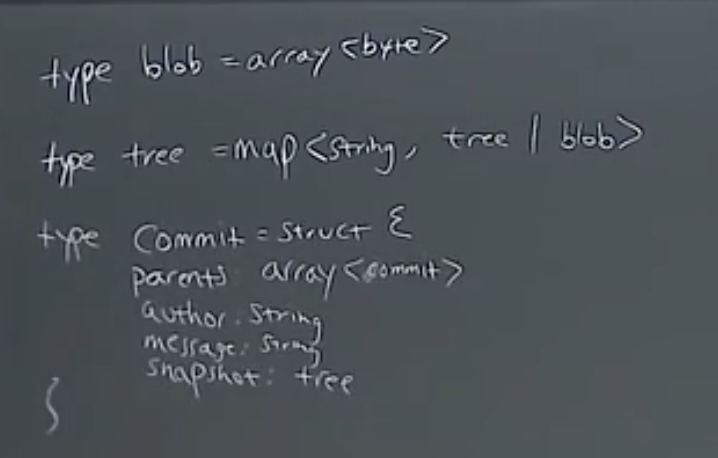 type blob = array <byte>
type tree = map <string, tree | blob>
type Commit = struct {
parents array <commit>
author: string
message: string
snapshot: tree
}